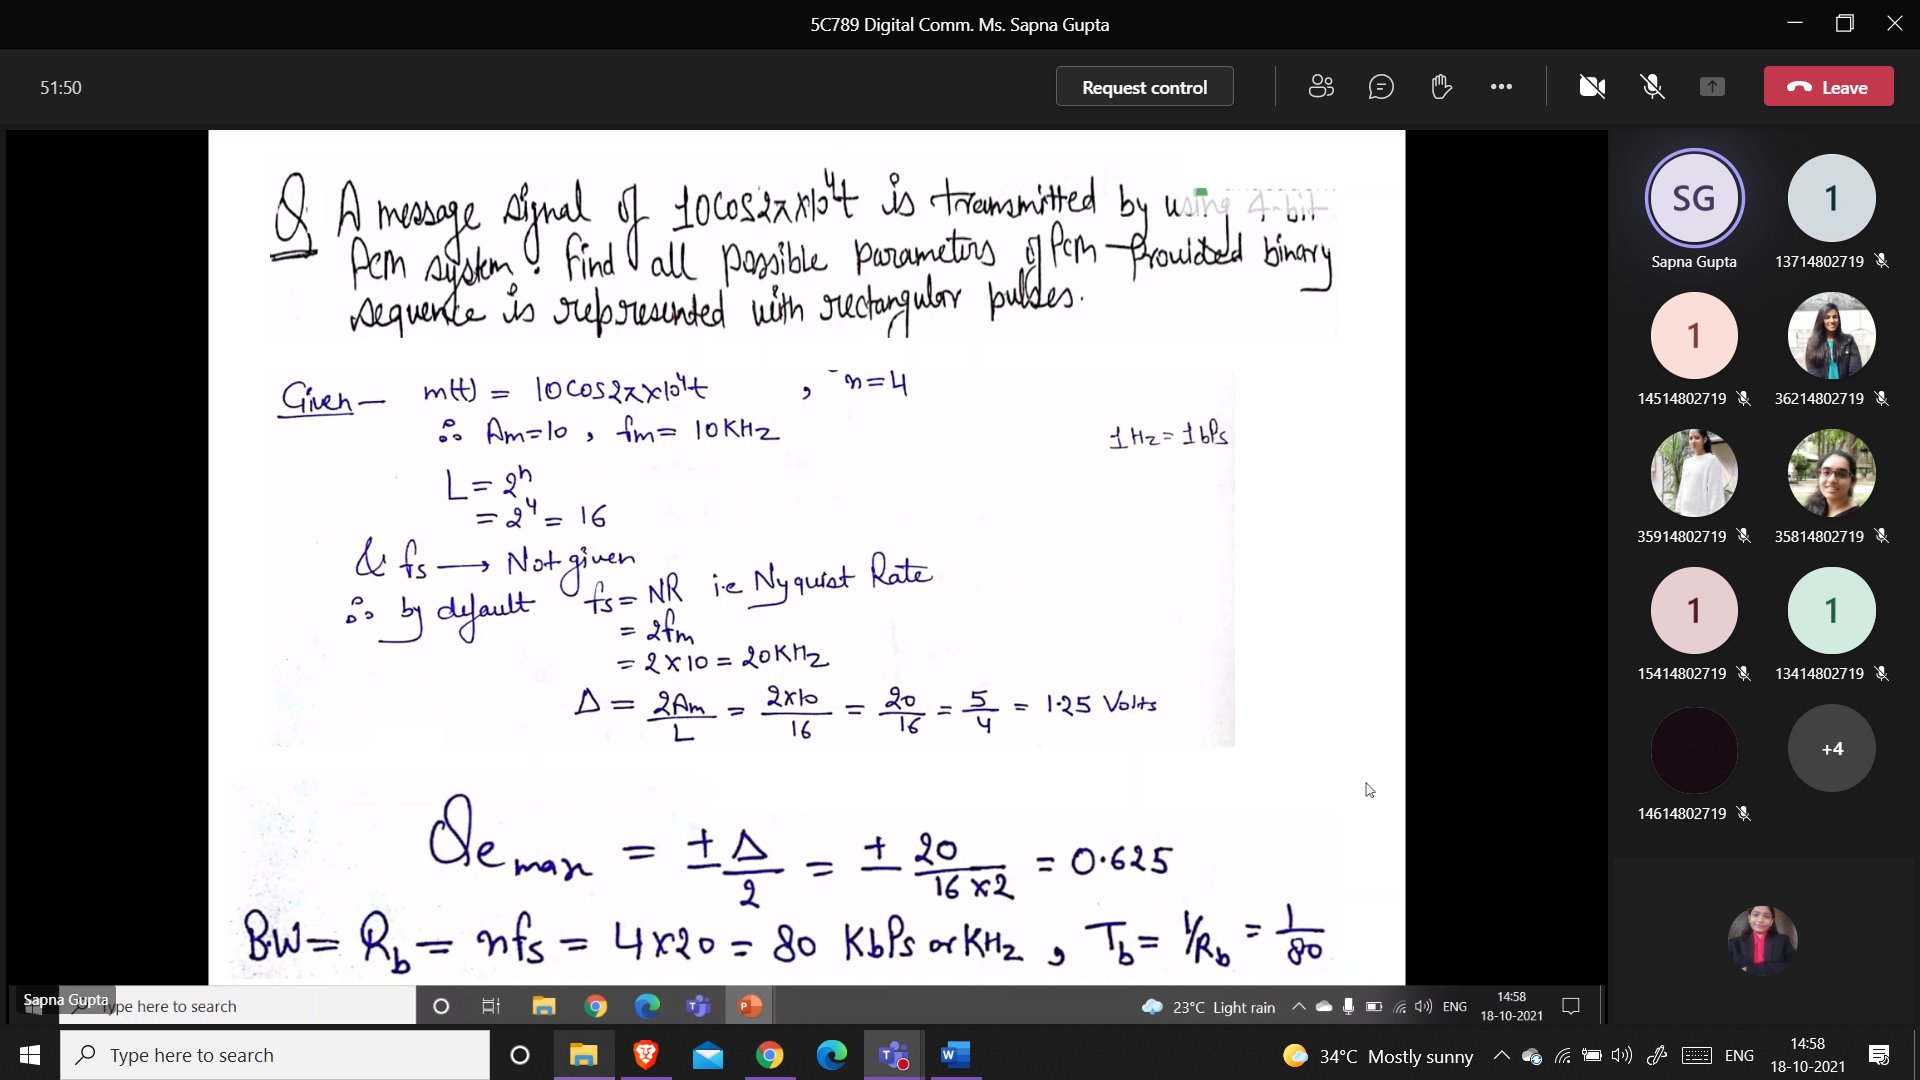 5C789 Digital Comm. Ms. Sapna Gupta
51:50
Request control
Leave
Q A message signal of 10cos2π×10⁴t is transmitted by using 4-bit
Pcm system. Find all possible parameters of Pcm provided binary
sequence is represented with rectangular pulses.
Given – m(t) = 10cos2π×10⁴t , n=4
∴ Am=10 , fm= 10KHz
1Hz = 1bPs
L = 2ⁿ
= 2⁴ = 16
& fs → Not given
∴ by default fs = NR i.e Nyquist Rate
= 2fm
= 2×10 = 20KHz
Δ = 2Am/L = 2×10/16 = 20/16 = 5/4 = 1.25 Volts
Qe max = ±Δ/2 = ± 20/16×2 = 0.625
B.W = Rb = nfs = 4×20 = 80 KbPs or KHz , Tb = 1/Rb = 1/80
SG
Sapna Gupta
1
13714802719
1
14514802719
36214802719
35914802719
35814802719
1
15414802719
1
13414802719
14614802719
+4
Sapna Gupta
Type here to search
23°C Light rain
ENG
14:58
18-10-2021
Type here to search
34°C Mostly sunny
ENG
14:58
18-10-2021